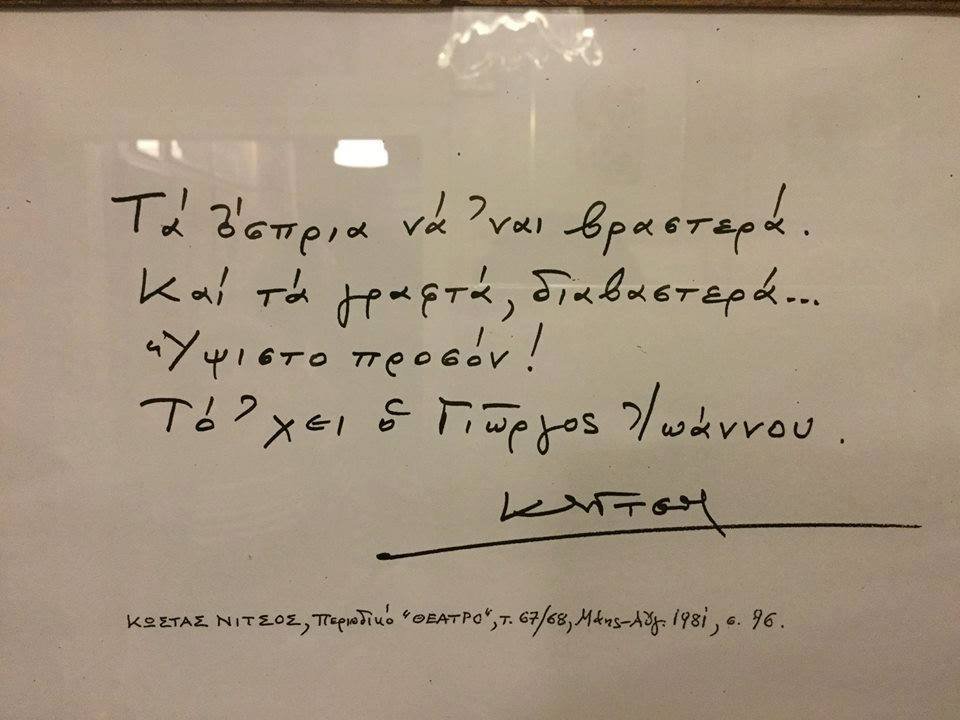 Τά ὄσπρια νά ᾿ναι βραστερά.
Καί τά γραφτά, διαβαστερά...
Ὕψιστο προσόν!
Τό ᾿χει ὁ Γιῶργος Ἰωάννου.
ΚΝίτσος
ΚΩΣΤΑΣ ΝΙΤΣΟΣ, περιοδικό "ΘΕΑΤΡΟ", τ. 67/68, Μάης-Αὔγ. 1981, σ. 96.